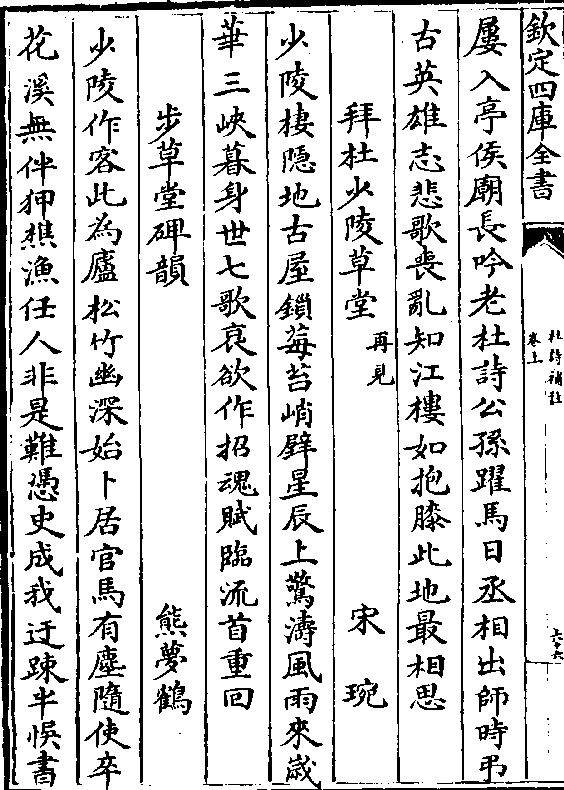 欽定四庫全書
杜詩補註
卷上
六十六
屢入亭侯廟長吟老杜詩公孫躍馬日丞相出師時弔
古英雄志悲歌喪亂知江樓如抱膝此地最相思
拜杜少陵草堂再見 宋琬
少陵棲隱地古屋鎖莓苔峭壁星辰上驚濤風雨來歲
華三峽暮身世七歌哀欲作招魂賦臨流首重回
步草堂碑韻 熊夢鶴
少陵作客此為廬松竹幽深始卜居官馬有塵隨使卒
花溪無伴狎樵漁任人非是難憑史成我迂踈半悞書